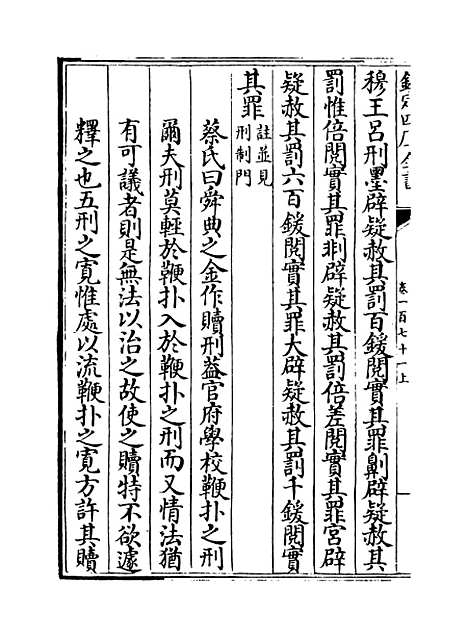 欽定四庫全書
卷一百七十一上
穆王呂刑墨辟疑赦其罰百鍰閱實其罪劓辟疑赦其
罰惟倍閱實其罪剕辟疑赦其罰倍差閱實其罪宮辟
疑赦其罰六百鍰閱實其罪大辟疑赦其罰千鍰閱實
其罪註並見
刑制門
蔡氏曰舜典之金作贖刑葢官府學校鞭扑之刑
爾夫刑莫輕於鞭扑入於鞭扑之刑而又情法猶
有可議者則是無法以治之故使之贖特不欲遽
釋之也五刑之寛惟處以流鞭扑之寛方許其贖